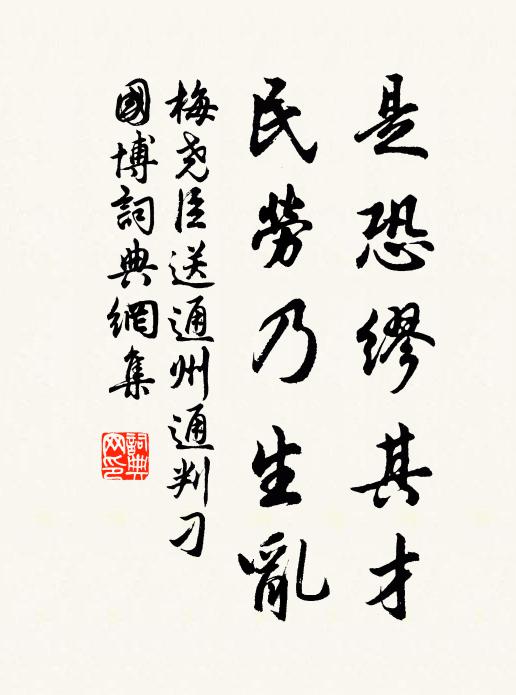 是恐繆其才
民勞乃生亂
梅尧臣送通州通判刁
國博詞典網集
詞典网印